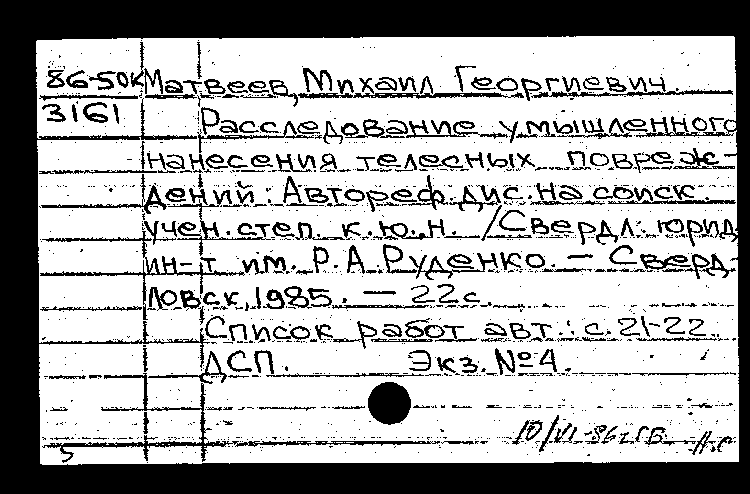 86-50к Матвеев, Михаил Георгиевич.
3161 Расследование умышленного
нанесения телесных повреж-
дений: Автореф. дис. на соиск.
учен. степ. к.ю.н. /Свердл. юрид.
ин-т им. Р.А.Руденко. — Сверд-
ловск, 1985. — 22с.
Список работ авт.: с.21-22.
ДСП. Экз. №4.
10/VI-86г. ГВ.
5